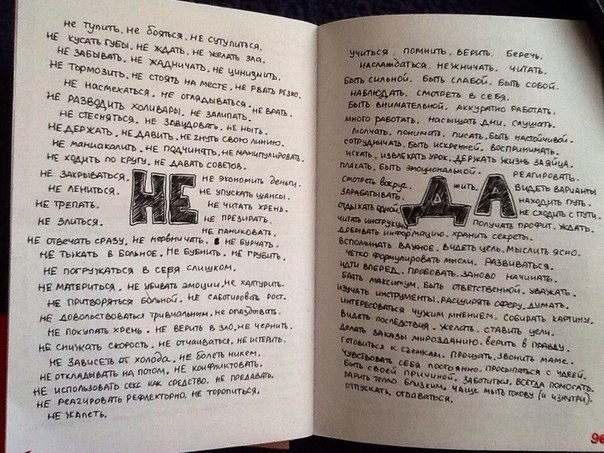 не тупить, не бояться, не сутулиться.
не кусать губы, не ждать, не желать зла.
не забывать, не жадничать, не цинизмить.
не тормозить, не стоять на месте, не рвать резко.
не насмехаться. не оглядываться, не врать.
не разводить холивары, не залипать.
не стесняться, не завидовать, не ныть.
не держать, не давить, не гнуть свою линию.
не маниакалить, не подчинять, не манипулировать.
не ходить по кругу, не давать советов.
не закрываться.
не лениться.
не трепать.
не злиться.
НЕ
не экономить деньги.
не упускать шансы.
не читать хрень.
не презирать.
не паниковать.
не отвечать сразу, не нервничать. не бурчать.
не тыкать в больное. не бубнить, не грубить.
не погружаться в себя слишком.
не материться, не убивать эмоции, не халтурить.
не притворяться больной, не саботировать рост.
не довольствоваться тривиальным, не опаздывать.
не покупать хрень. не верить в зло, не чернить.
не снижать скорость. не отчаиваться, не истерить.
не зависеть от холода, не болеть никем.
не откладывать на потом, не конфликтовать.
не использовать секс как средство, не предавать.
не реагировать рефлекторно, не торопиться,
не жалеть.
учиться, помнить, верить, беречь,
наслаждаться, нежничать, читать,
быть сильной, быть слабой, быть собой.
наблюдать, смотреть в себя.
быть внимательной, аккуратно работать.
много работать, насыщать дни, слушать,
молчать, понимать, писать, быть настойчивой.
сотрудничать, быть искренней, воспринимать.
искать, извлекать урок, держать жизнь за яйца.
плакать, быть эмоциональной.
смотреть вокруг.
зарабатывать.
отдыхать одной
читать инструкции
ДА
жить.
реагировать.
видеть варианты
находить путь.
не сходить с пути.
получать профит, ждать.
добывать информацию, хранить секреты.
вспоминать важное, видеть цель, мыслить ясно.
четко формулировать мысли, развиваться.
идти вперед, пробовать заново начинать.
брать максимум, быть ответственной, уважать.
изучать инструменты, расширять сферу, думать.
интересоваться чужим мнением, собирать картину.
видеть последствия, желать, ставить цели.
делать заказы мирозданию, верить в правду
готовиться к съемкам, прощать, звонить маме.
чувствовать себя постоянно, просыпаться с идеей.
быть своей причиной, заботиться, всегда помогать.
дарить тепло близким, чаще мыть голову (и изнутри).
отпускать, отдаваться.